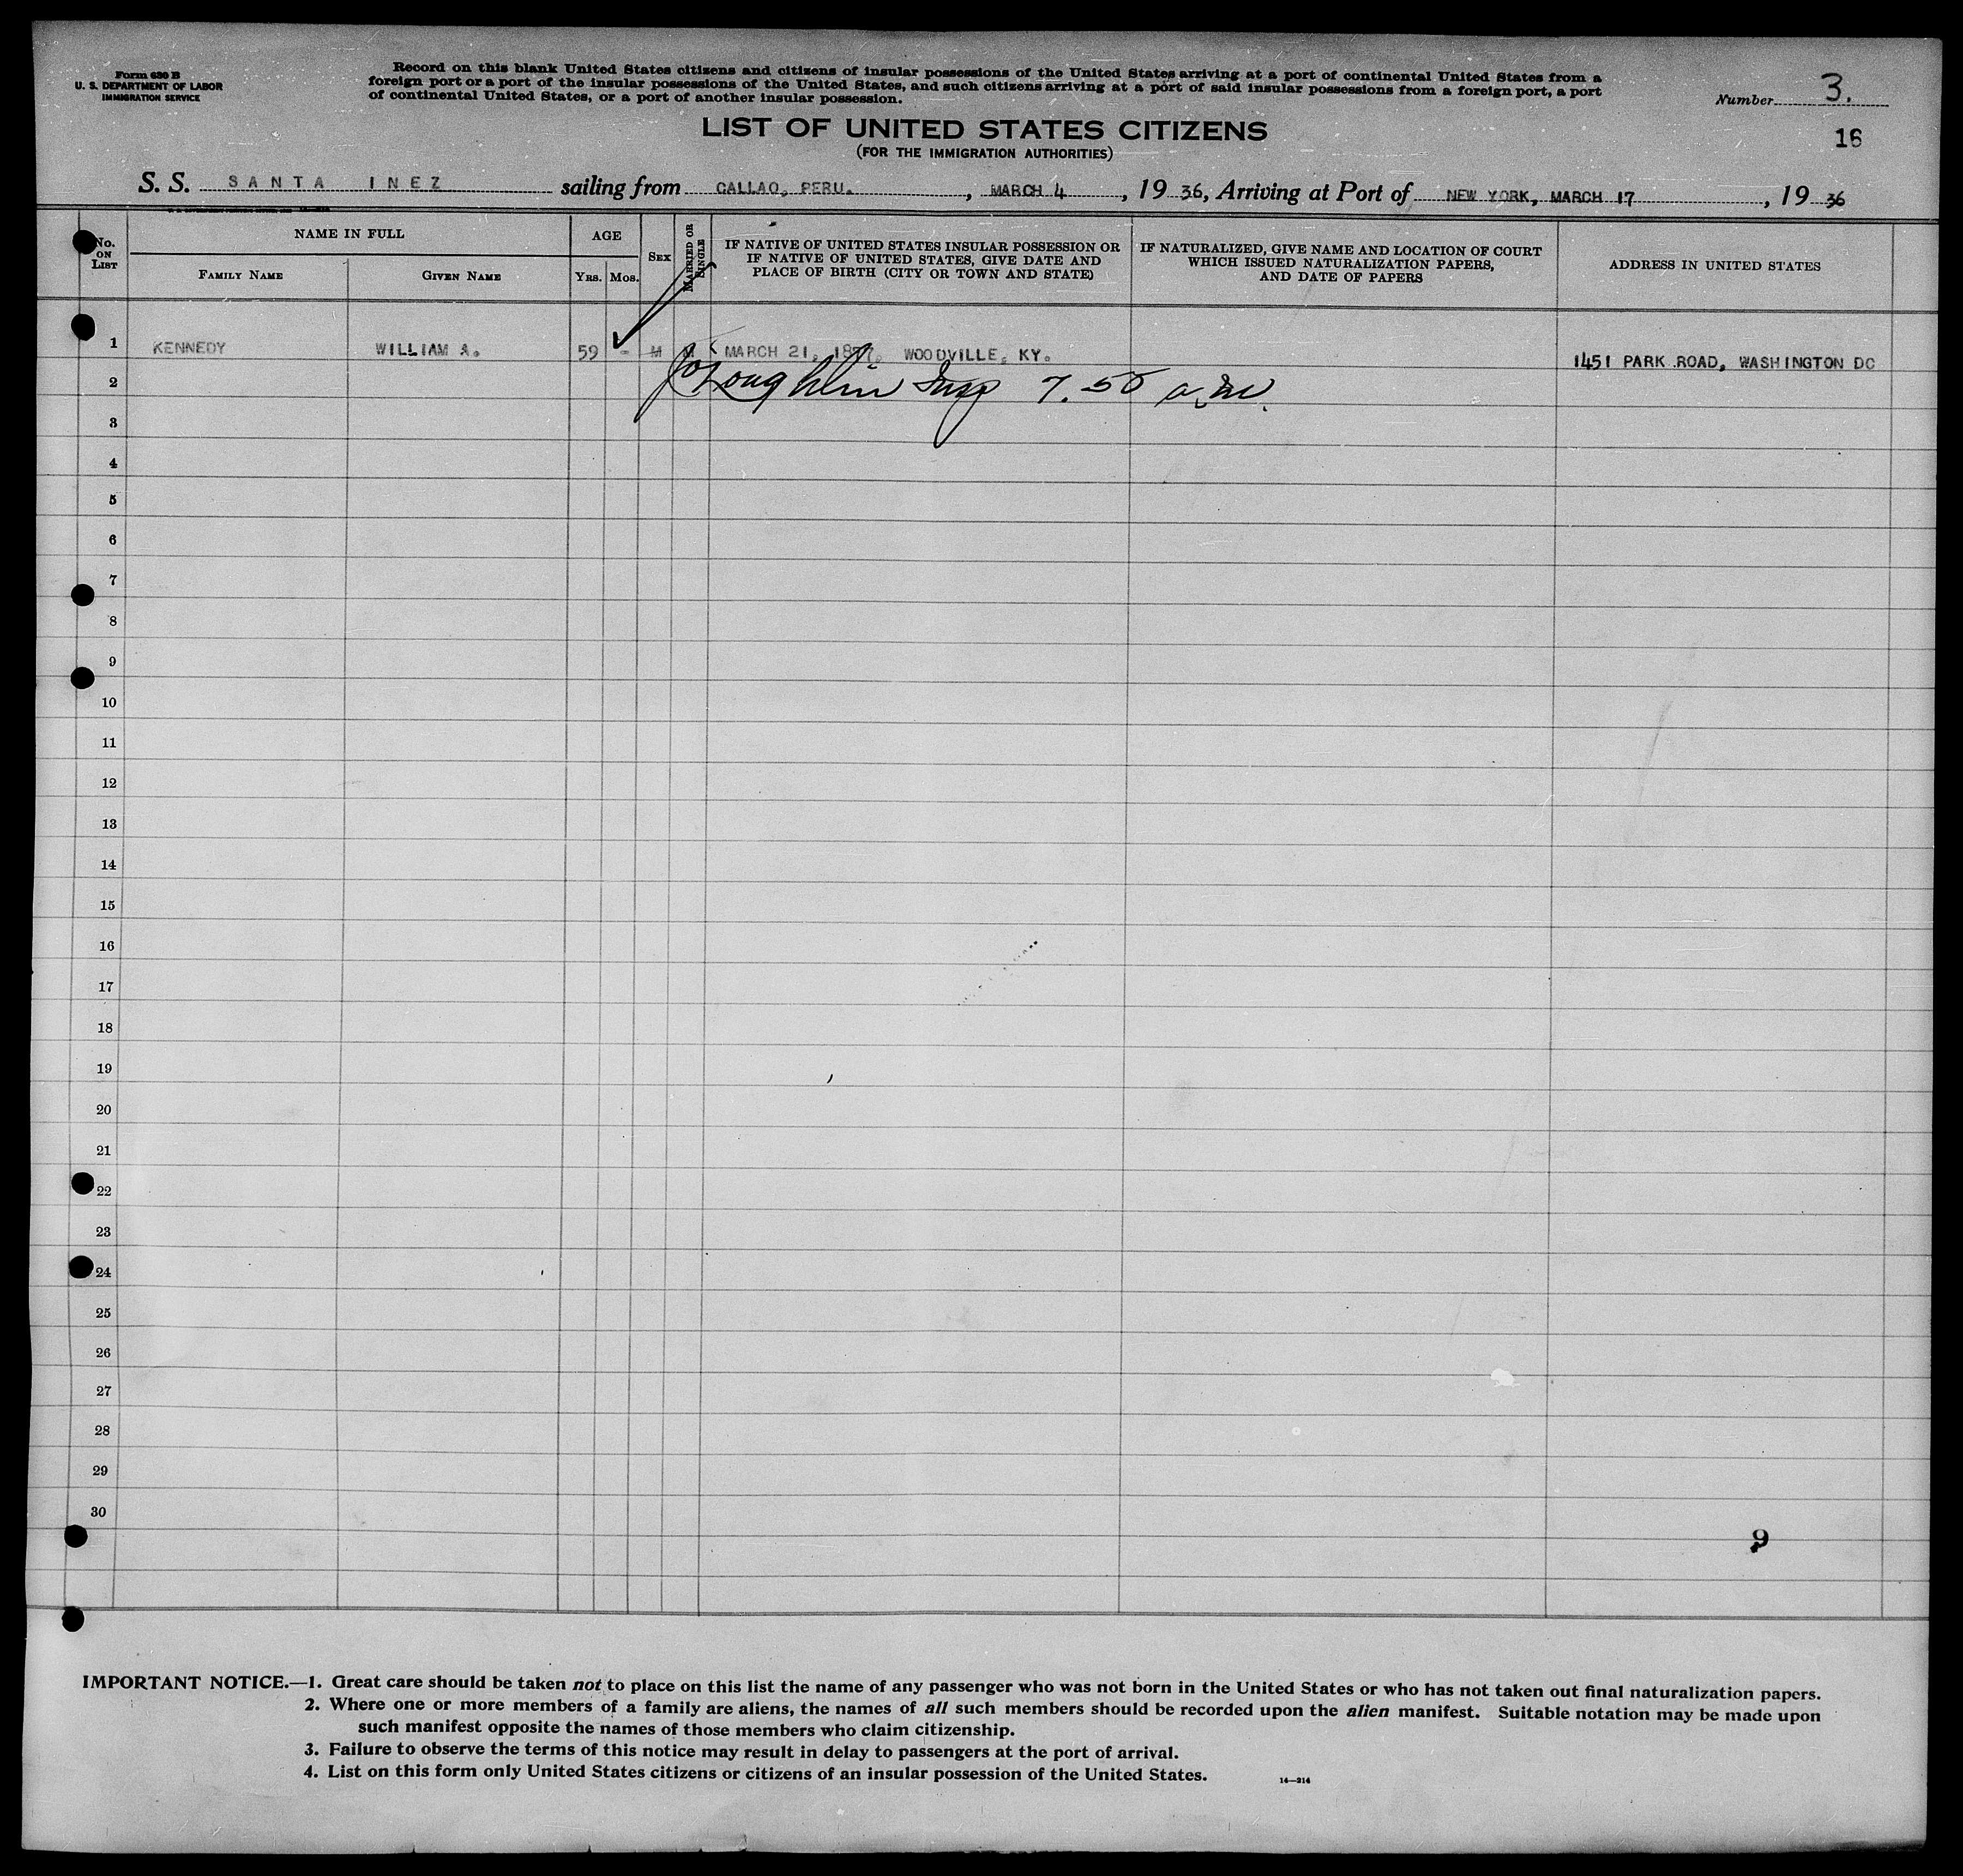 Form 630 B
U. S. DEPARTMENT OF LABOR
IMMIGRATION SERVICE
Record on this blank United States citizens and citizens of insular possessions of the United States arriving at a port of continental United States from a
foreign port or a port of the insular possessions of the United States, and such citizens arriving at a port of said insular possessions from a foreign port, a port
of continental United States, or a port of another insular possession.
Number 3.
LIST OF UNITED STATES CITIZENS
(FOR THE IMMIGRATION AUTHORITIES)
16
S. S. SANTA INEZ sailing from CALLAO, PERU. , MARCH 4 , 19 36, Arriving at Port of NEW YORK, MARCH 17 , 19 36
No. ON LIST
NAME IN FULL
FAMILY NAME
GIVEN NAME
AGE
YRS. MOS.
SEX
MARRIED OR SINGLE
IF NATIVE OF UNITED STATES INSULAR POSSESSION OR
IF NATIVE OF UNITED STATES, GIVE DATE AND
PLACE OF BIRTH (CITY OR TOWN AND STATE)
IF NATURALIZED, GIVE NAME AND LOCATION OF COURT
WHICH ISSUED NATURALIZATION PAPERS,
AND DATE OF PAPERS
ADDRESS IN UNITED STATES
1 KENNEDY WILLIAM A. 59 - M M MARCH 21, WOODVILLE, KY. 1451 PARK ROAD, WASHINGTON DC
2 Insp 7.50 a.m.
3
4
5
6
7
8
9
10
11
12
13
14
15
16
17
18
19
20
21
22
23
24
25
26
27
28
29
30
9
IMPORTANT NOTICE.—1. Great care should be taken not to place on this list the name of any passenger who was not born in the United States or who has not taken out final naturalization papers.
2. Where one or more members of a family are aliens, the names of all such members should be recorded upon the alien manifest. Suitable notation may be made upon
such manifest opposite the names of those members who claim citizenship.
3. Failure to observe the terms of this notice may result in delay to passengers at the port of arrival.
4. List on this form only United States citizens or citizens of an insular possession of the United States.
14—314